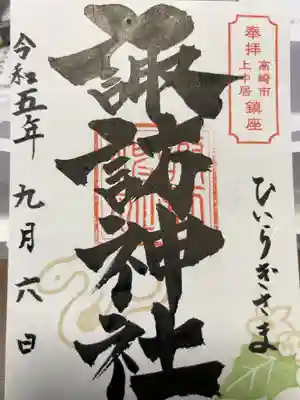 奉拝
高崎市
上中居
鎮座
ひいらぎさま
諏訪神社
令和五年 九月六日